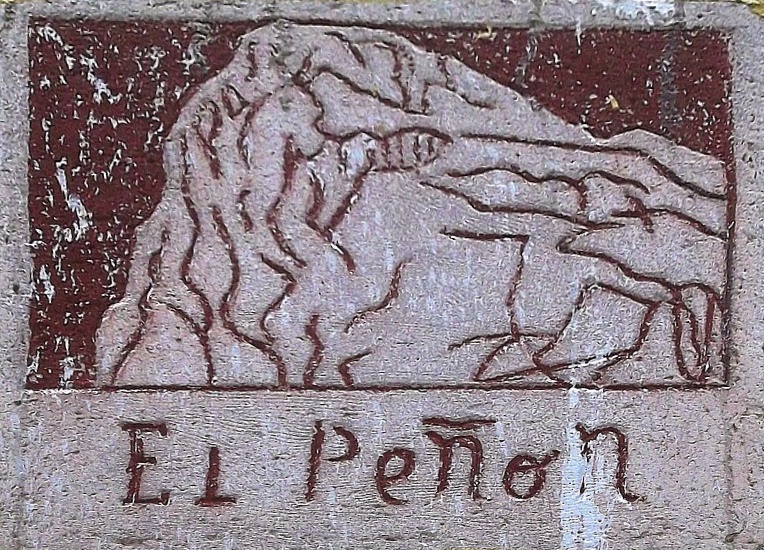 EL Peñon